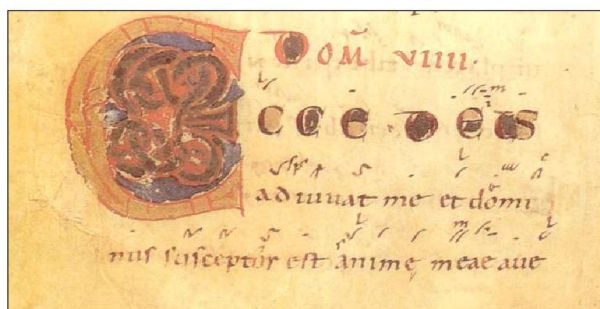 DOM̄ VIIII.
ECCE DEUS
adiuuat me et domi
nus susceptor est animę meae aue